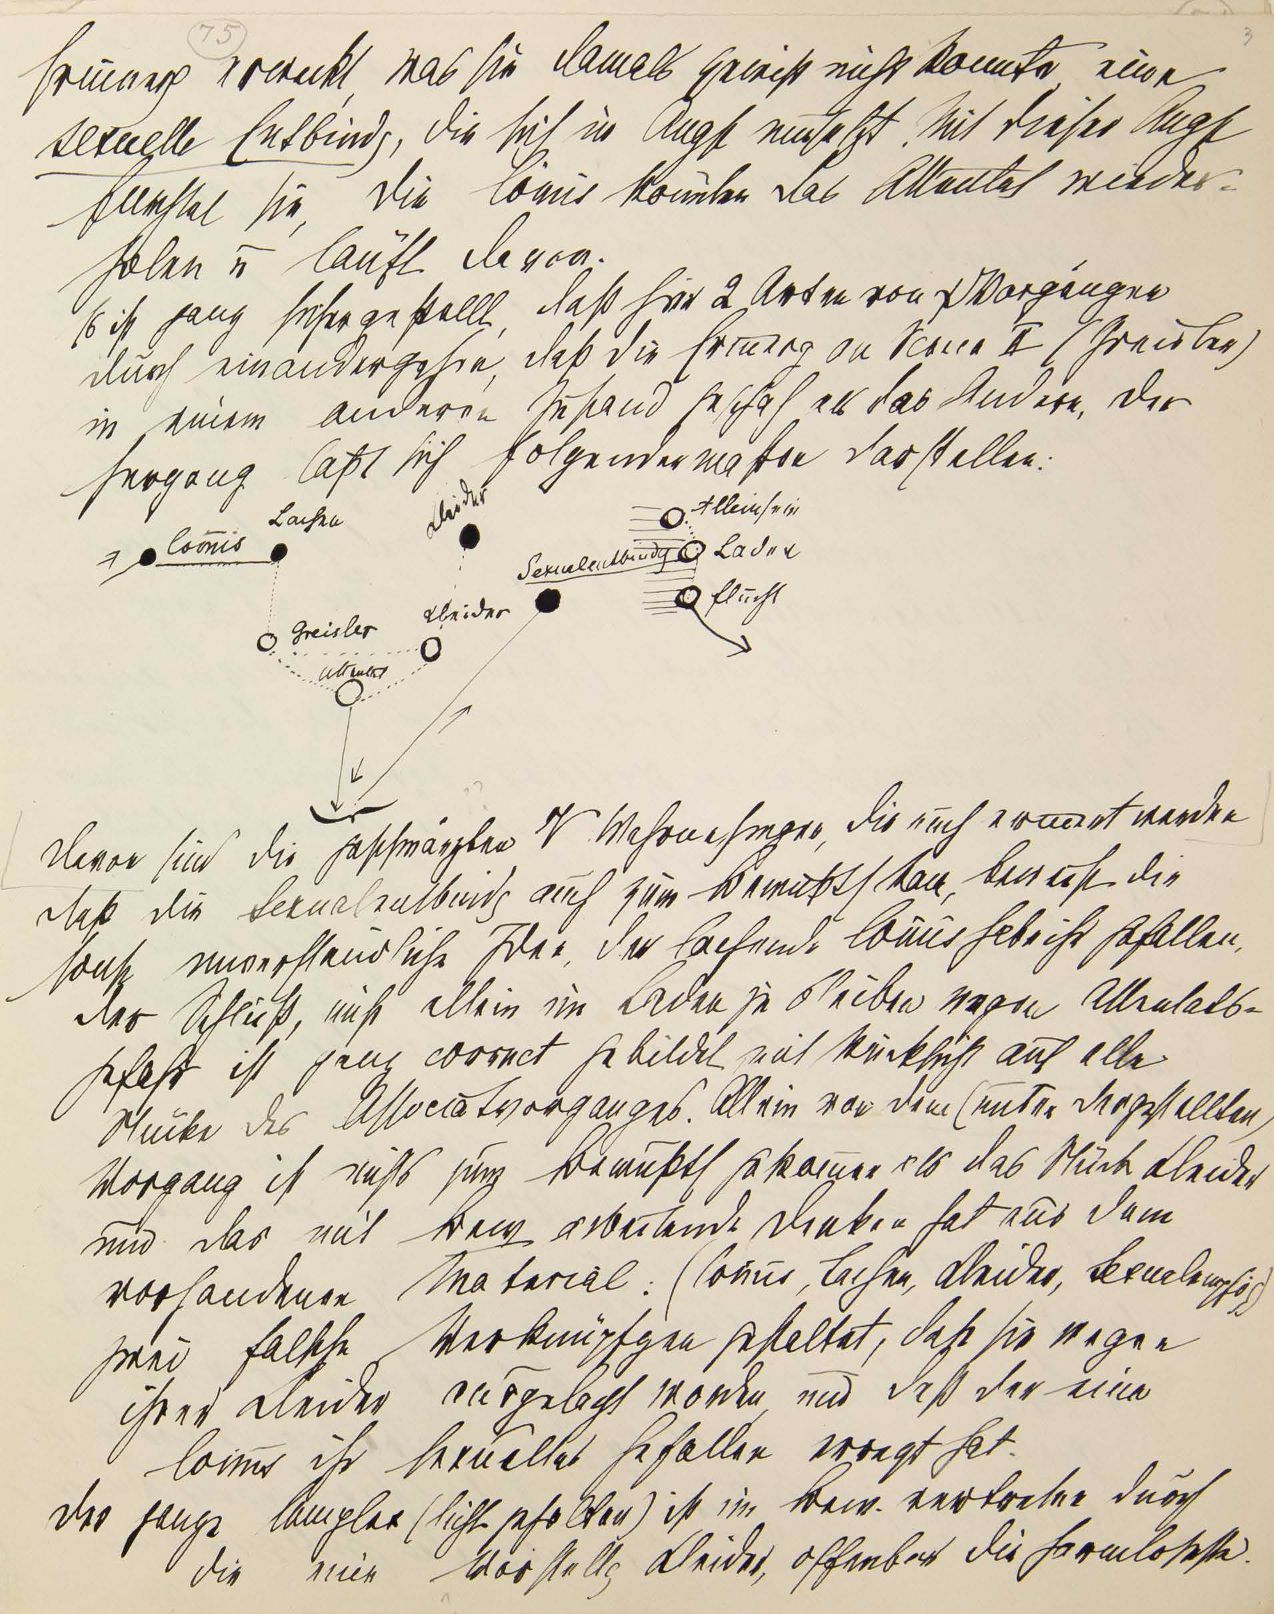 75
3
Erinnerg erweckt, was sie damals gewiß nicht konnte, eine
sexuelle Entbindg, die sich in Angst umsetzt. Mit dieser Angst
fürchtet sie, die Com̄is könnten das Attentat wieder-
holen u läuft davon.
Es ist ganz sichergestellt, daß hier 2 Arten von ψ Vorgängen
durch einandergehen, daß die Erinnerg an Scene II (Greisler)
in einem anderen Zustand geschah als das Andere. Der
Hergang läßt sich folgendermaßen darstellen:
Com̄is
Lachen
Kleider
Alleinsein
Laden
Flucht
Sexualentbindg
Greisler
Kleider
Attentat
Davon sind die geschwärzten W Wahrnehmgen, die auch erinnert werden
daß die Sexualentbindg auch zum Bewußts kam, beweist die
sonst unverständliche Idee, der lachende Com̄is habe ihr gefallen.
Der Schluß, nicht allein im Laden zu bleiben wegen Attentats-
gefahr ist ganz correct gebildet mit Rücksicht auf alle
Stücke des Associatvorganges. Allein von dem (unten dargestellten)
Vorgang ist nichts zum Bewußts gekom̄en als das Stück Kleider
und das mit Bew arbeitende Denken hat aus dem
vorhandenen Material: (Com̄is, Lachen, Kleider, Sexualempfdg)
zwei falsche Verknüpfgen gestaltet, daß sie wegen
ihrer Kleider ausgelacht worden und daß der eine
Com̄is ihr sexuelles Gefallen erregt hat.
Der ganze Complex (licht gehalten) ist im Bew. vertreten durch
die eine Vorstellg Kleider, offenbar die harmloseste.